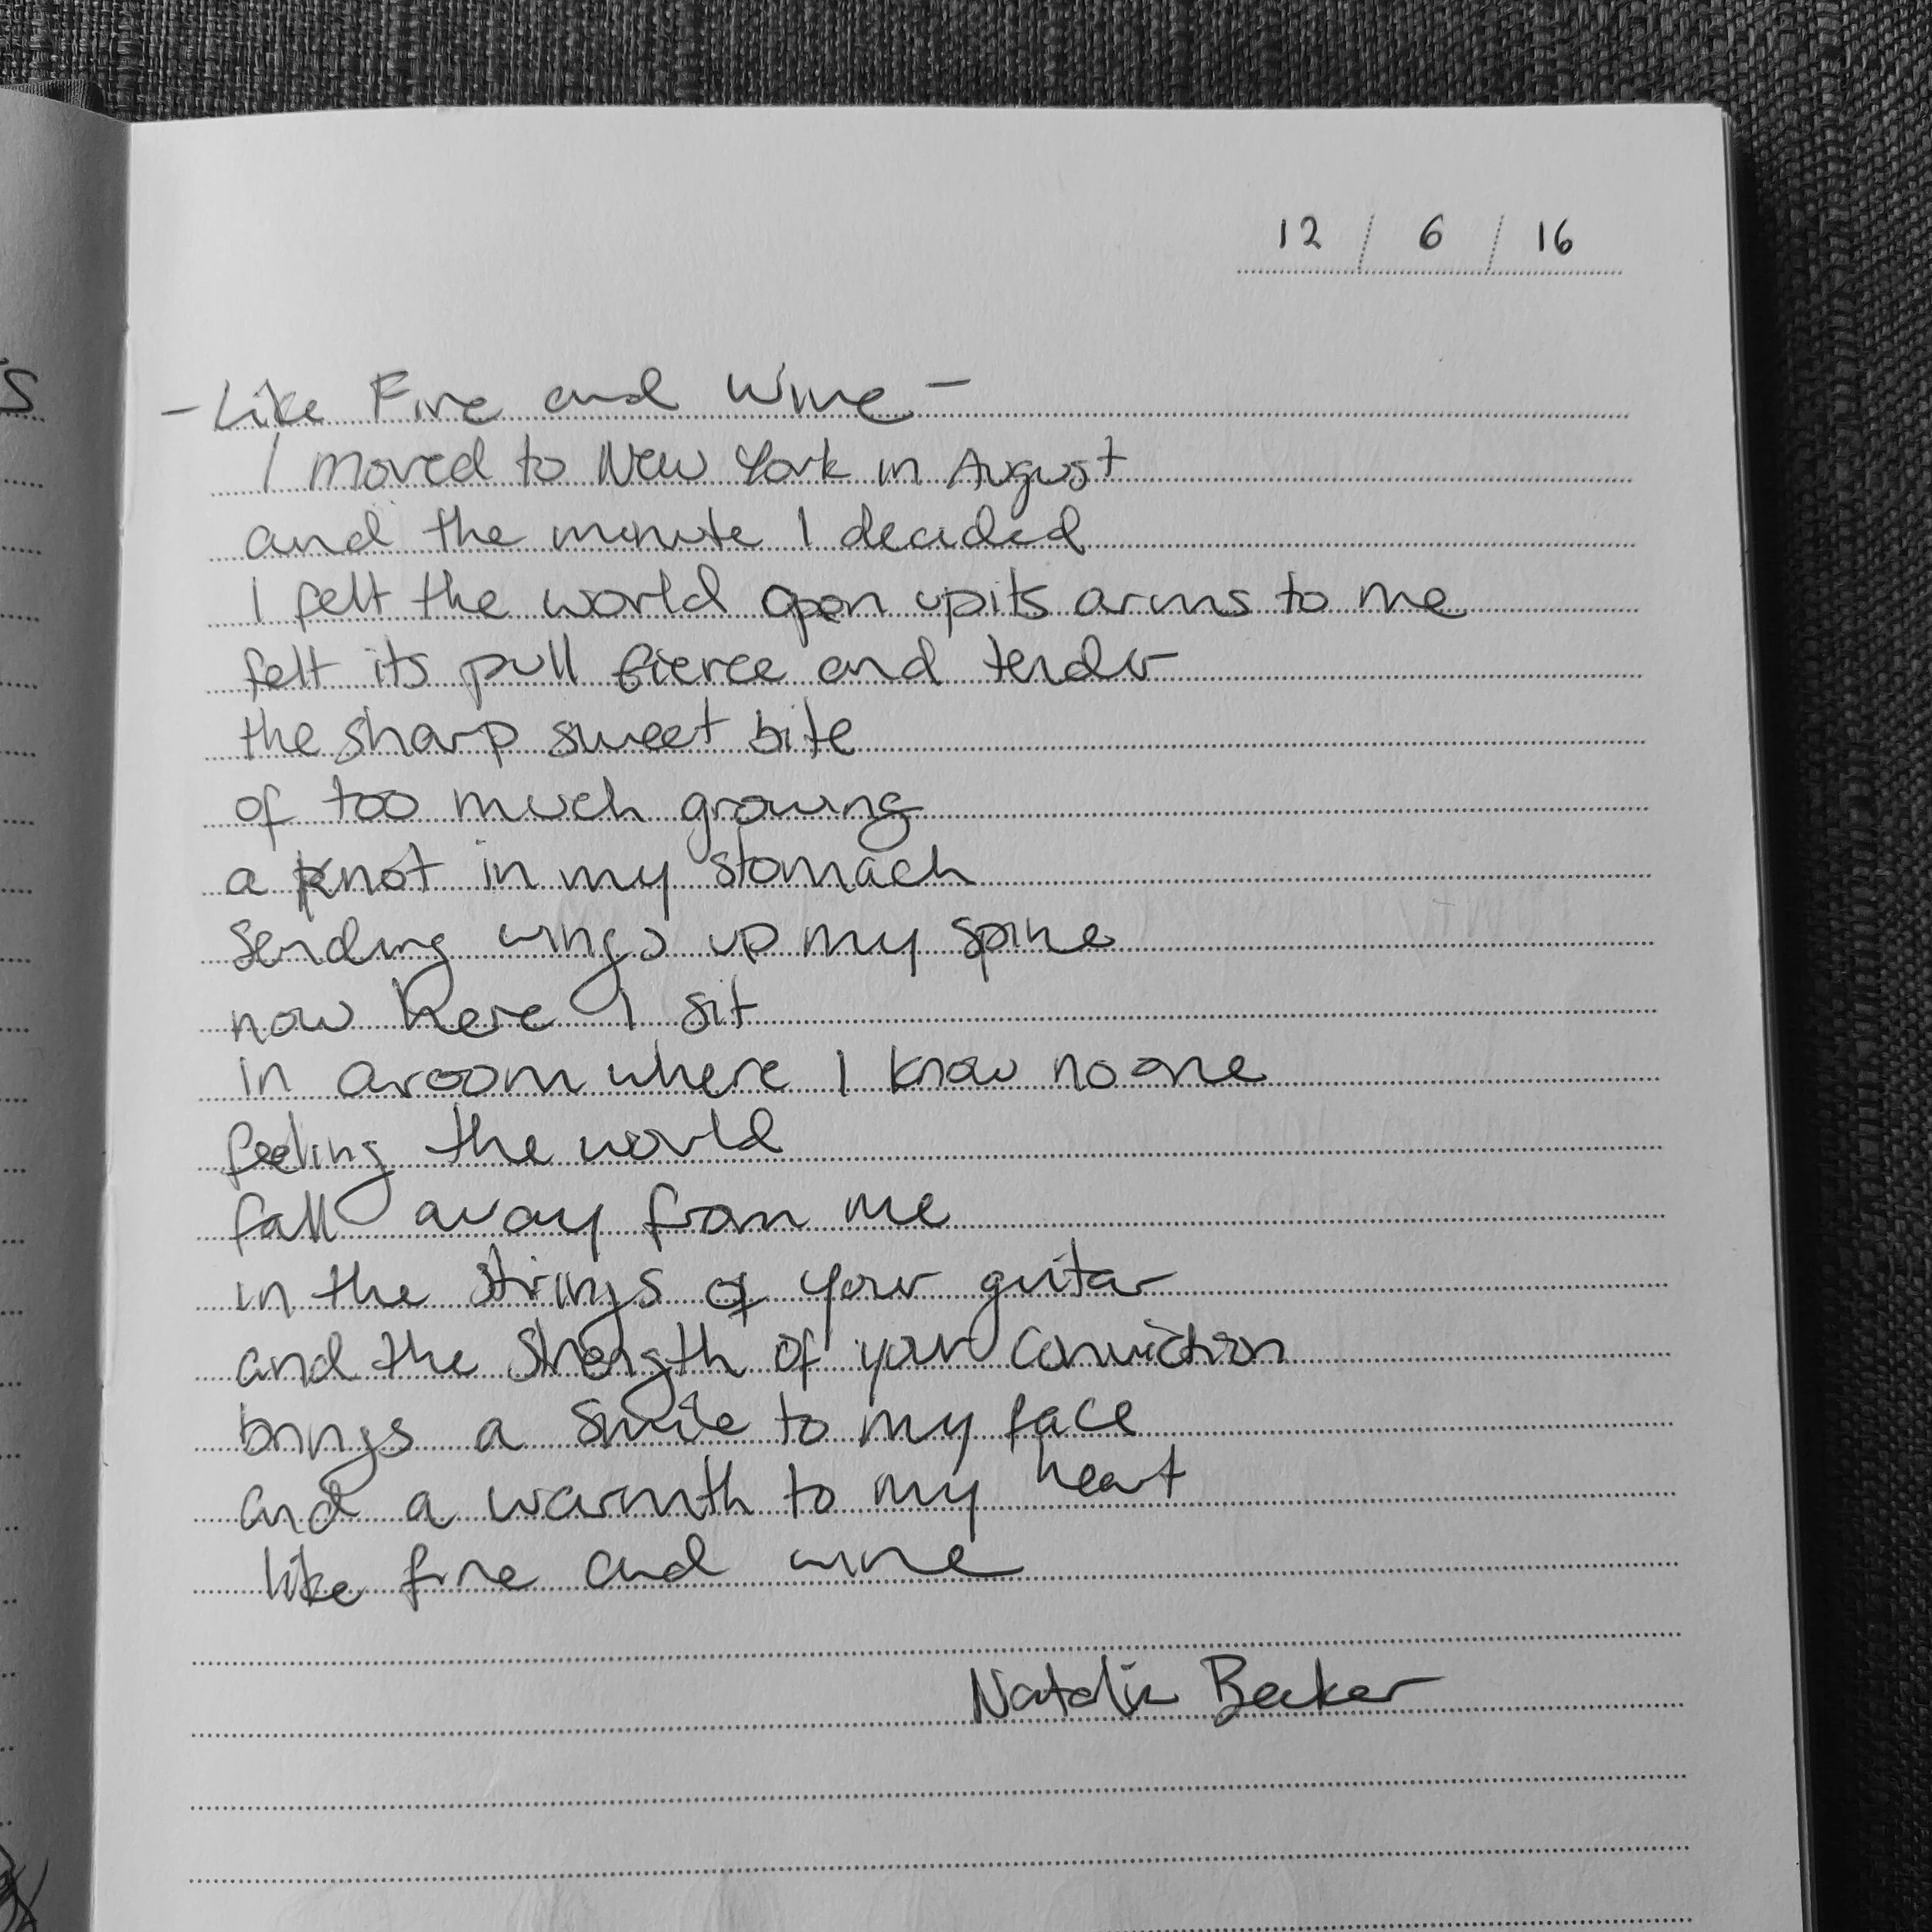 12 / 6 / 16
- Like Fire and Wine -
I moved to New York in August
and the minute I decided
I felt the world open up its arms to me
felt its pull fierce and tender
the sharp sweet bite
of too much growing
a knot in my stomach
sending wings up my spine
now here I sit
in a room where I know no one
feeling the world
fall away from me
in the strings of your guitar
and the strength of your conviction
brings a smile to my face
and a warmth to my heart
like fire and wine
Natalie Becker